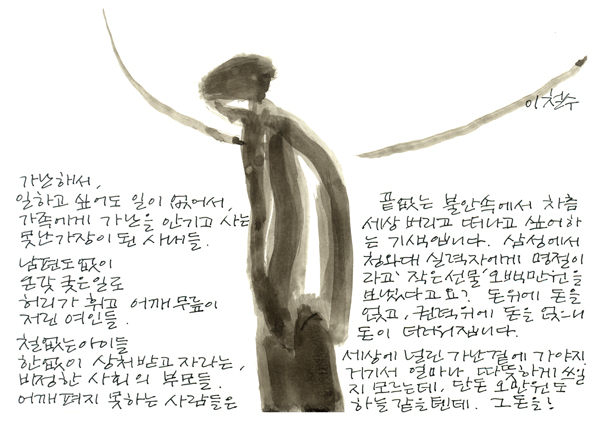 이철수
가난해서,
일하고 싶어도 일이 없어서,
가족에게 가난을 안기고 사는
못난가장이 된 사내들.
남편도 없이
온갖 궂은일로
허리가 휘고 어깨 무릎이
저린 여인들.
철없는아이들
한없이 상처받고 자라는,
비정한 사회의 부모들.
어깨펴지 못하는 사람들은
끝없는 불안속에서 차츰
세상 버리고 떠나고 싶어하
는 기색입니다. 삼성에서
청와대 실력자에게 명절이
라고 '작은선물' 오백만원을
보냈다고요? 돈위에 돈을
얹고, 권력위에 돈을 얹으니
돈이 더러워집니다.
세상에 널린 가난곁에 가야지.
거기서 얼마나 따뜻하게 쓰일
지 모르는데, 단돈 오만원도
하늘같을텐데. 그돈을!